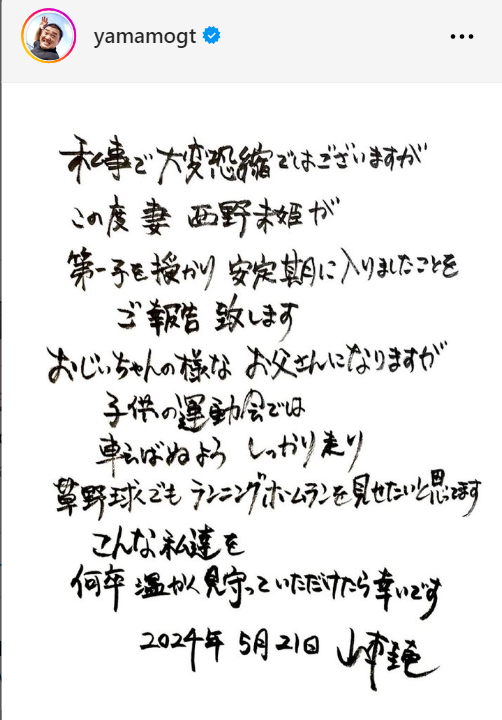 yamamogt
私事で大変恐縮ではございますが
この度 妻 西野未姫が
第一子を授かり 安定期に入りましたことを
ご報告致します
おじいちゃんの様な お父さんになりますが
子供の運動会では
転ばぬよう しっかり走り
草野球でも ランニングホームランを見せたいと思ってます
こんな私達を
何卒 温かく見守っていただけたら幸いです
2024年 5月21日 山本圭壱